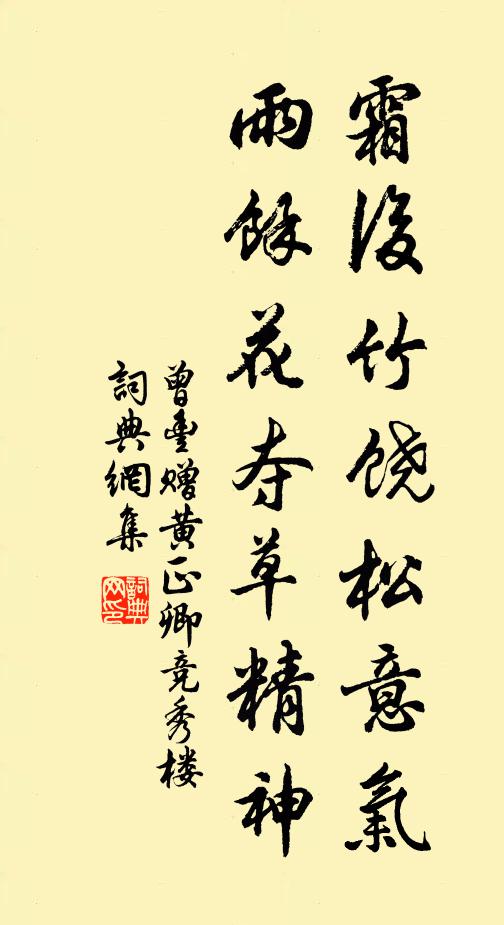 霜後竹饶松意氣
雨餘花夺草精神
曾豊赠黄正卿竞秀楼
詞典網集
詞典網印